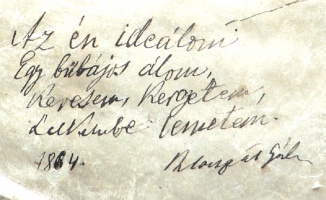 Az én ideálom
Egy bűbájos álom,
Keresem, kergetem,
Lelkembe temetem.
1864.